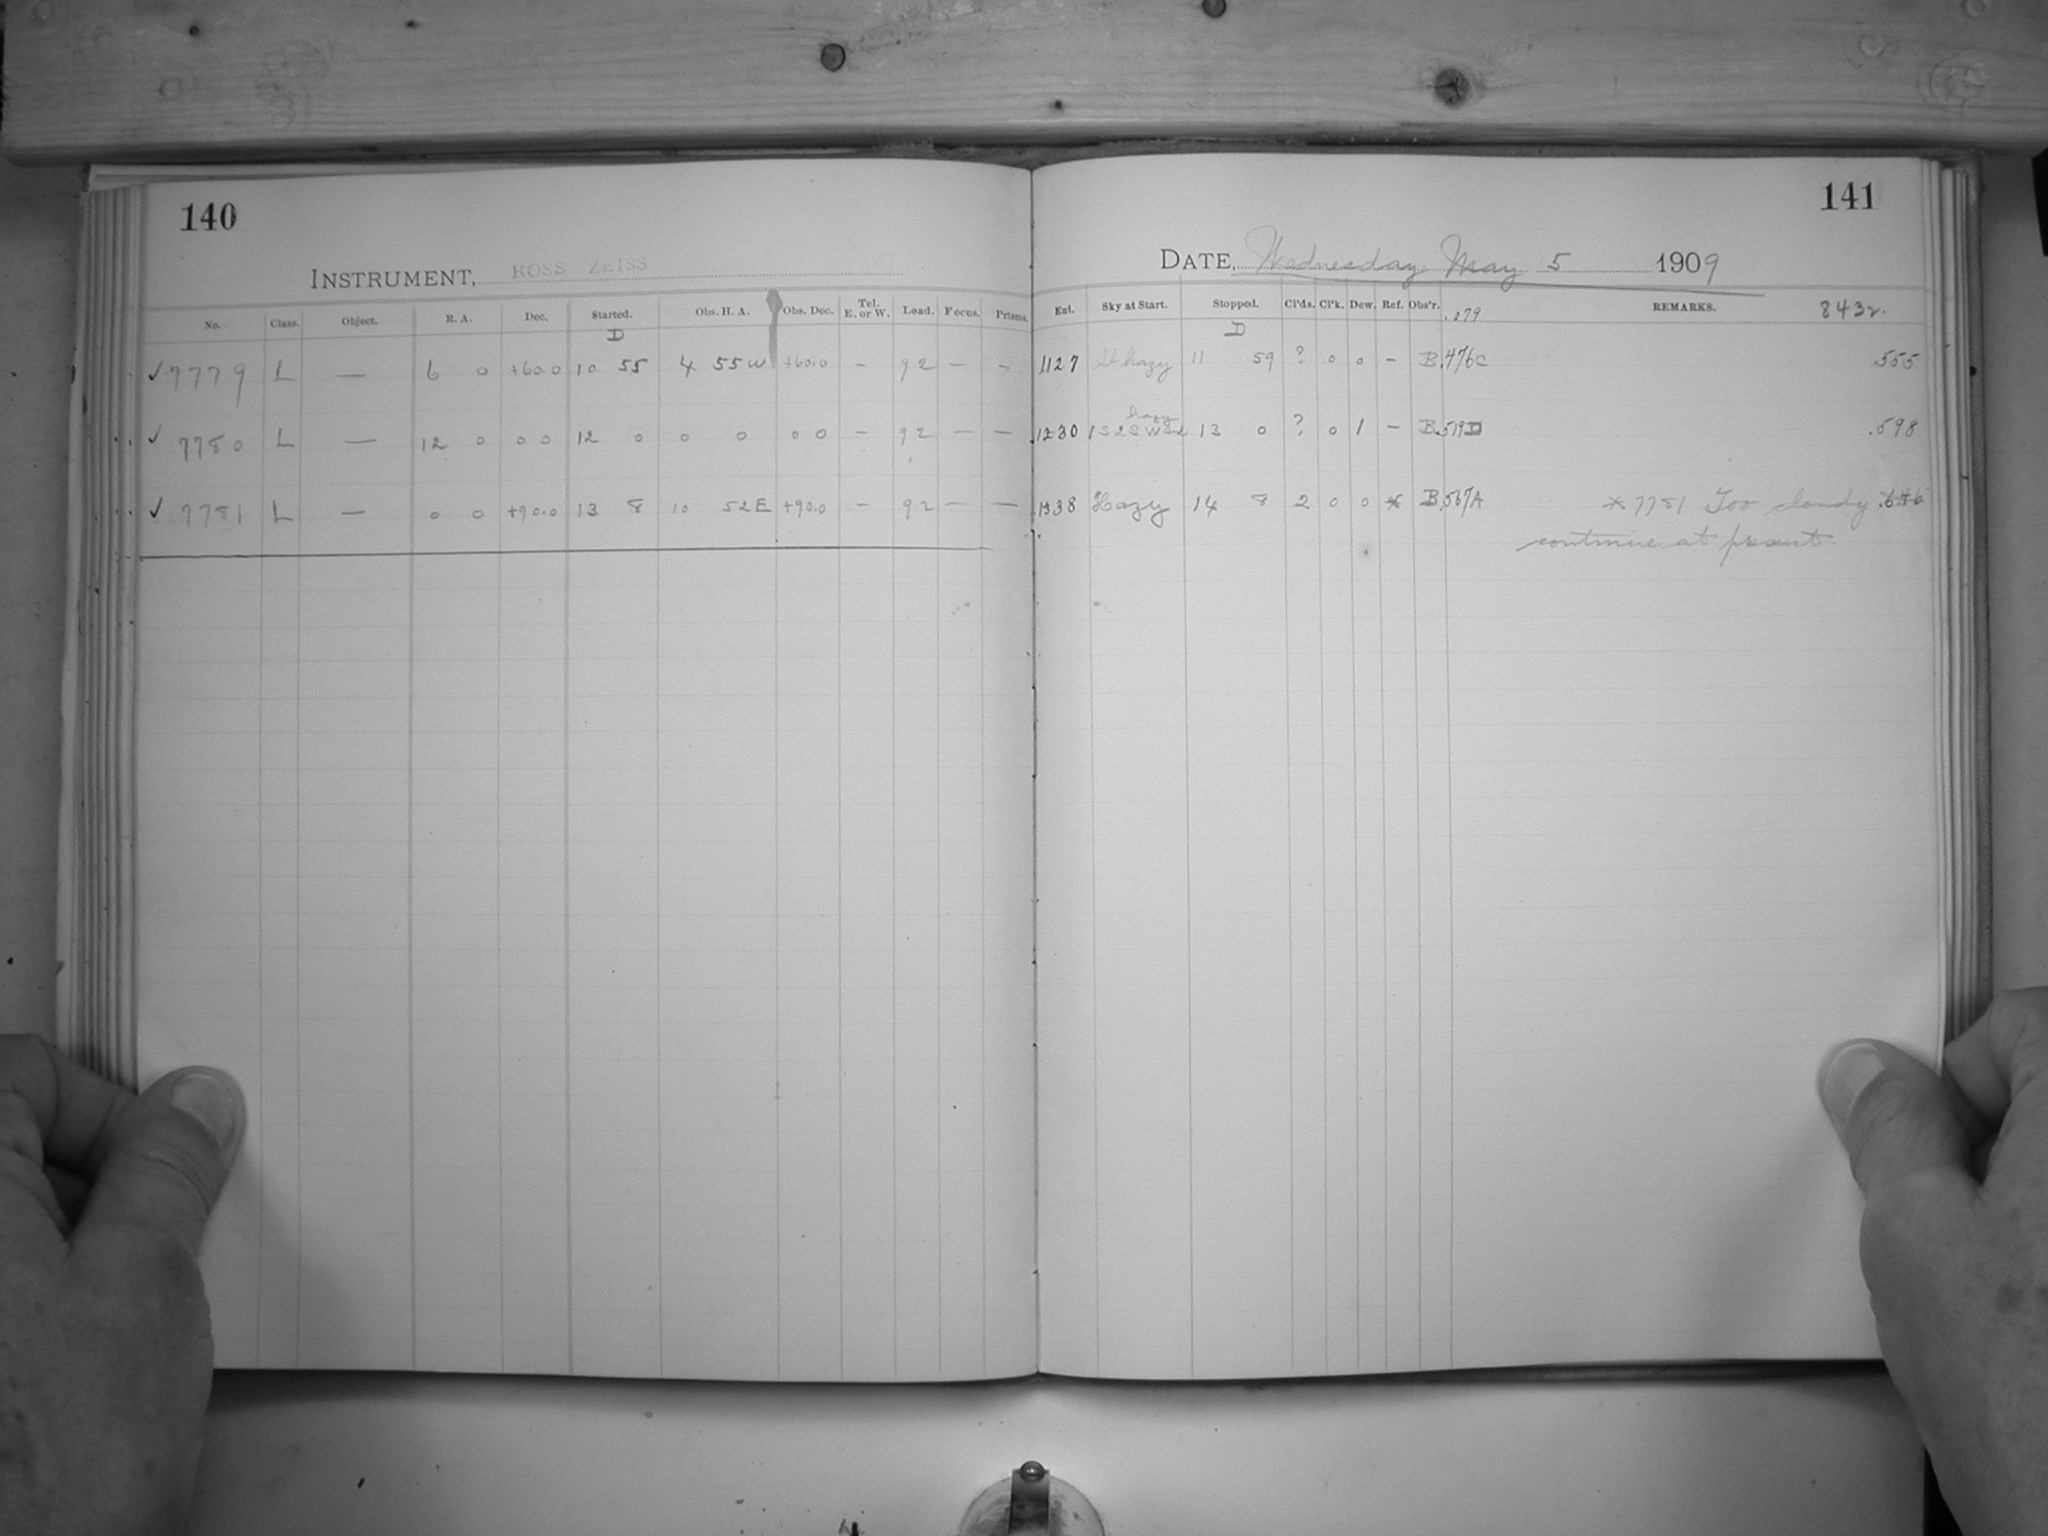 140
INSTRUMENT, ROSS ZEISS
No. Class. Object. R. A. Dec. Started. Obs. H. A. Obs. Dec. Tel. E. or W. Load. Focus. Prisms.
D
✓ 7779 L — 6 0 +60.0 10 55 4 55 W +60.0 – 92 – –
✓ 7780 L — 12 0 0 0 12 0 0 0 0 0 – 92 – –
✓ 7781 L — 0 0 +90.0 13 8 10 52 E +90.0 – 92 – –
141
DATE, Wednesday May 5 1909
Ent. Sky at Start. Stopped. Cl'ds. Cl'k. Dew. Ref. Obs'r. .079 REMARKS. 8432.
D
1127 Sl hazy 11 59 ? 0 0 – B .476C .555
hazy
1230 13 0 ? 0 1 – B .519D .598
1338 Hazy 14 8 2 0 0 * B .567A * 7781 Too cloudy .646
continue at present